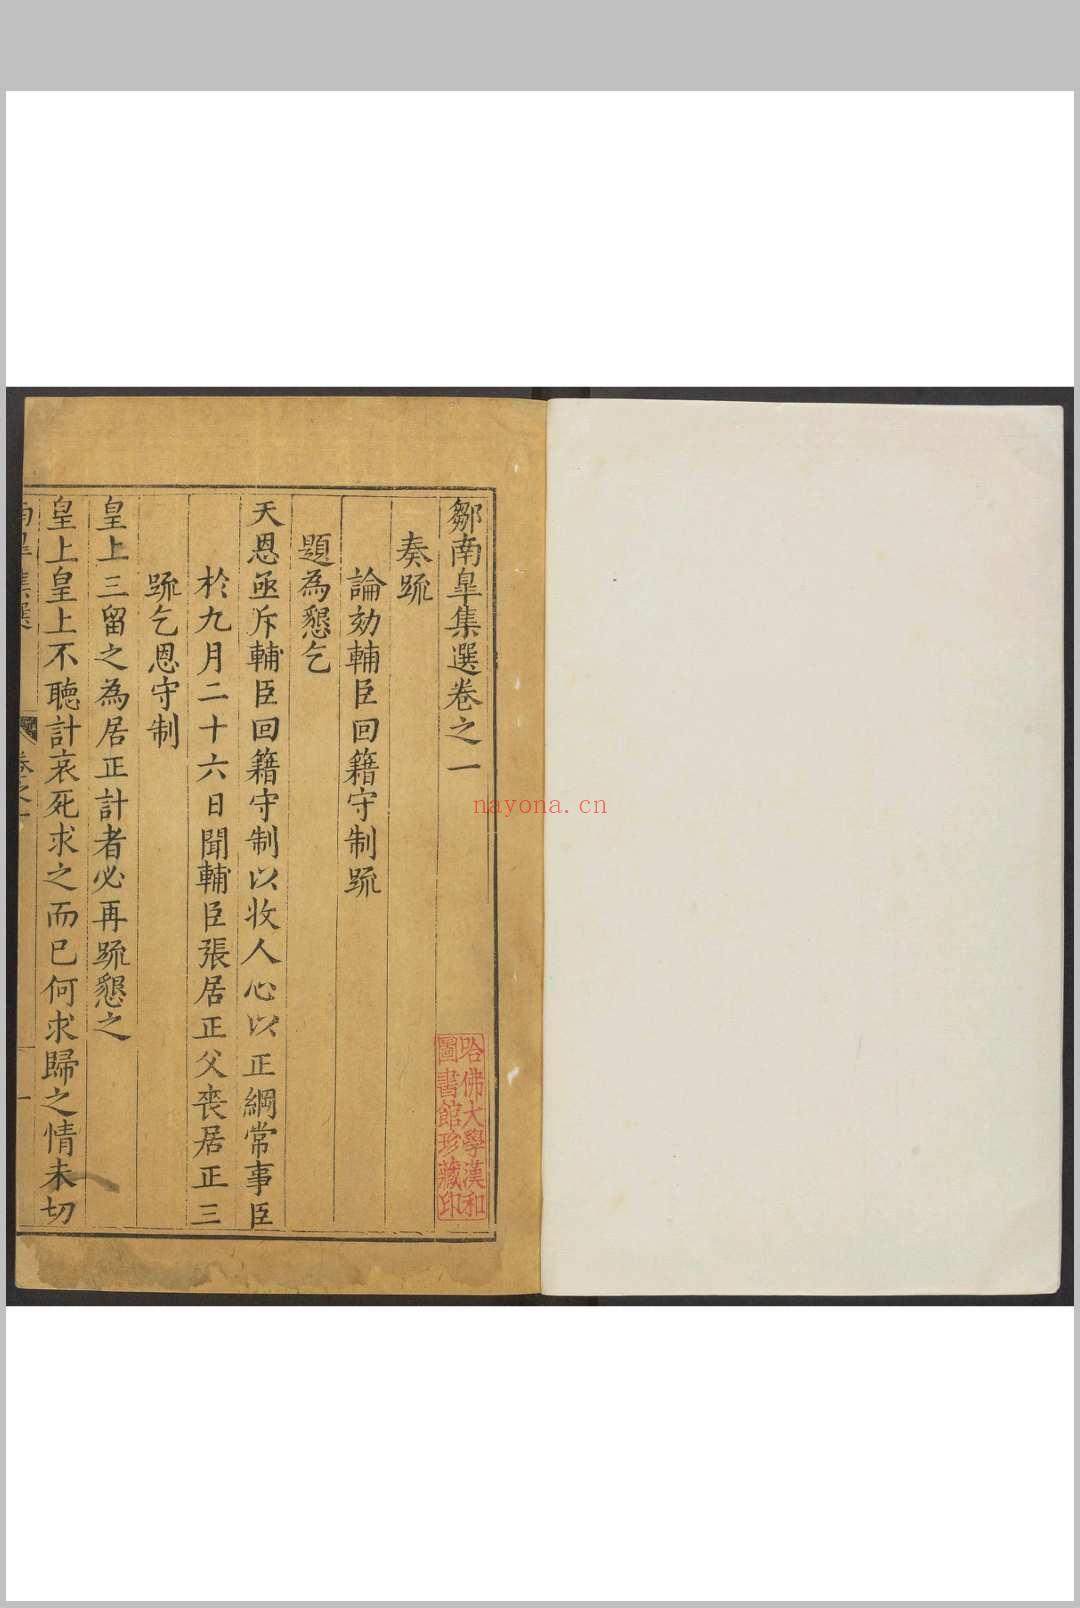 鄒南臯集選卷之一
奏疏
論劾輔臣回籍守制疏
題為懇乞
天恩亟斥輔臣回籍守制以收人心以正綱常事臣
於九月二十六日聞輔臣張居正父喪居正三
疏乞恩守制
皇上三留之為居正計者必再疏懇之
皇上皇上不聽計哀死求之而已何求歸之情未切
南臯集選
卷之一
一
哈佛大學漢和
圖書館珍藏印
nayona.cn